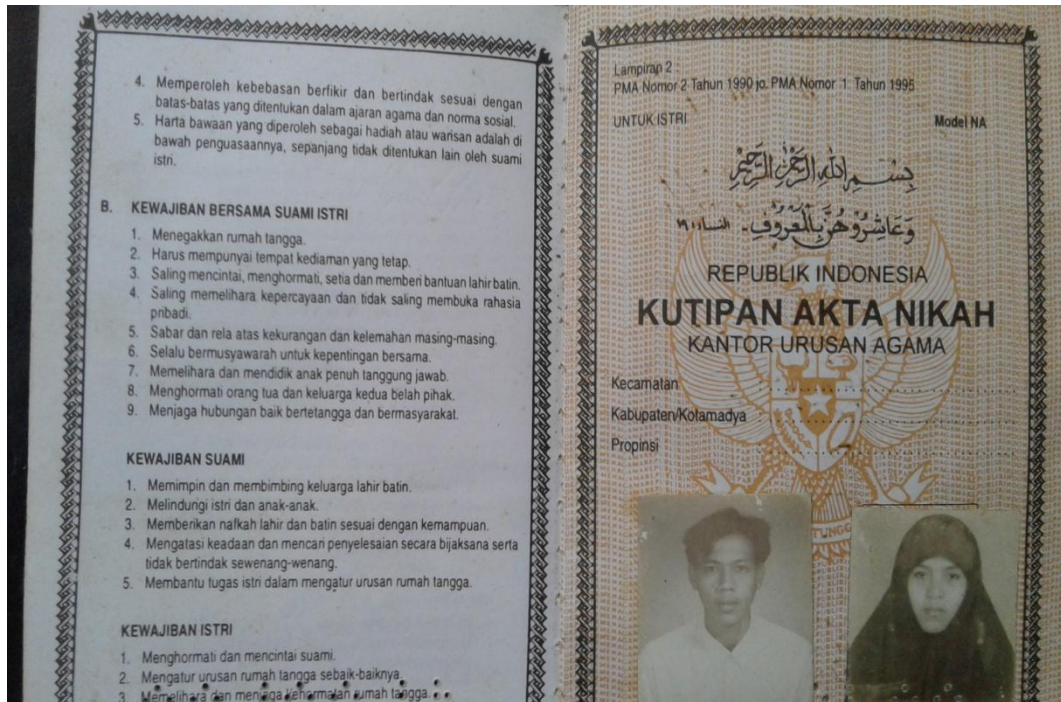 4. Memperoleh kebebasan berfikir dan bertindak sesuai dengan
batas-batas yang ditentukan dalam ajaran agama dan norma sosial.
5. Harta bawaan yang diperoleh sebagai hadiah atau warisan adalah di
bawah penguasaannya, sepanjang tidak ditentukan lain oleh suami
istri.
B. KEWAJIBAN BERSAMA SUAMI ISTRI
1. Menegakkan rumah tangga.
2. Harus mempunyai tempat kediaman yang tetap.
3. Saling mencintai, menghormati, setia dan memberi bantuan lahir batin.
4. Saling memelihara kepercayaan dan tidak saling membuka rahasia
pribadi.
5. Sabar dan rela atas kekurangan dan kelemahan masing-masing.
6. Selalu bermusyawarah untuk kepentingan bersama.
7. Memelihara dan mendidik anak penuh tanggung jawab.
8. Menghormati orang tua dan keluarga kedua belah pihak.
9. Menjaga hubungan baik bertetangga dan bermasyarakat.
KEWAJIBAN SUAMI
1. Memimpin dan membimbing keluarga lahir batin.
2. Melindungi istri dan anak-anak.
3. Memberikan nafkah lahir dan batin sesuai dengan kemampuan.
4. Mengatasi keadaan dan mencari penyelesaian secara bijaksana serta
tidak bertindak sewenang-wenang.
5. Membantu tugas istri dalam mengatur urusan rumah tangga.
KEWAJIBAN ISTRI
1. Menghormati dan mencintai suami.
2. Mengatur urusan rumah tangga sebaik-baiknya.
3. Memelihara dan menjaga kehormatan rumah tangga.
Lampiran 2
PMA Nomor 2 Tahun 1990 jo. PMA Nomor 1 Tahun 1995
UNTUK ISTRI Model NA
بِسْمِ اللهِ الرَّحْمٰنِ الرَّحِيْمِ
وَعَاشِرُوْهُنَّ بِالْمَعْرُوْفِ - النساء ١٩
REPUBLIK INDONESIA
KUTIPAN AKTA NIKAH
KANTOR URUSAN AGAMA
Kecamatan
Kabupaten/Kotamadya
Propinsi